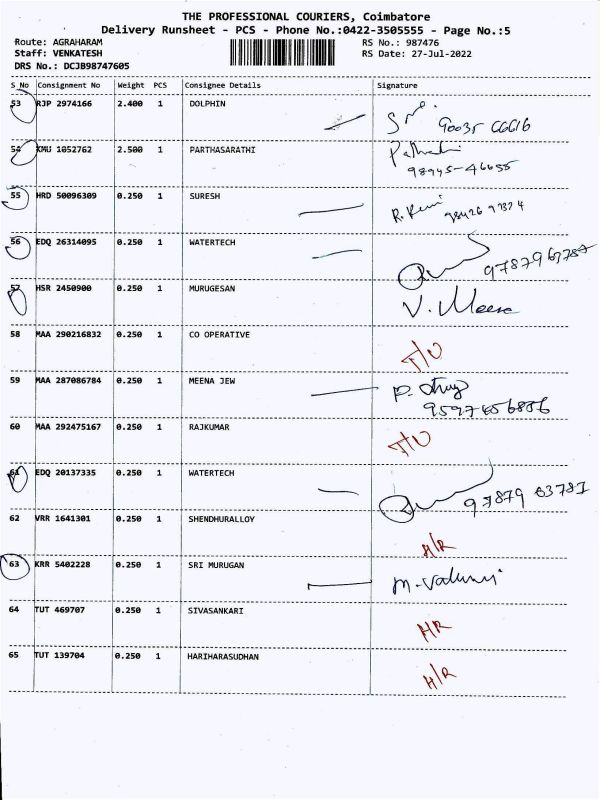 THE PROFESSIONAL COURIERS, Coimbatore
Delivery Runsheet - PCS - Phone No.:0422-3505555 - Page No.:5
Route: AGRAHARAM RS No.: 987476
Staff: VENKATESH RS Date: 27-Jul-2022
DRS No.: DCJB98747605
S No Consignment No Weight PCS Consignee Details Signature
53 RJP 2974166 2.400 1 DOLPHIN
54 KMU 1052762 2.500 1 PARTHASARATHI
98945-46655
55 HRD 50096309 0.250 1 SURESH
56 EDQ 26314095 0.250 1 WATERTECH
9787963787
57 HSR 2450900 0.250 1 MURUGESAN V. Meena
58 MAA 290216832 0.250 1 CO OPERATIVE
59 MAA 287086784 0.250 1 MEENA JEW
60 MAA 292475167 0.250 1 RAJKUMAR
61 EDQ 20137335 0.250 1 WATERTECH
97879 63787
62 VRR 1641301 0.250 1 SHENDHURALLOY H/R
63 KRR 5402228 0.250 1 SRI MURUGAN
64 TUT 469707 0.250 1 SIVASANKARI H/R
65 TUT 139704 0.250 1 HARIHARASUDHAN H/R